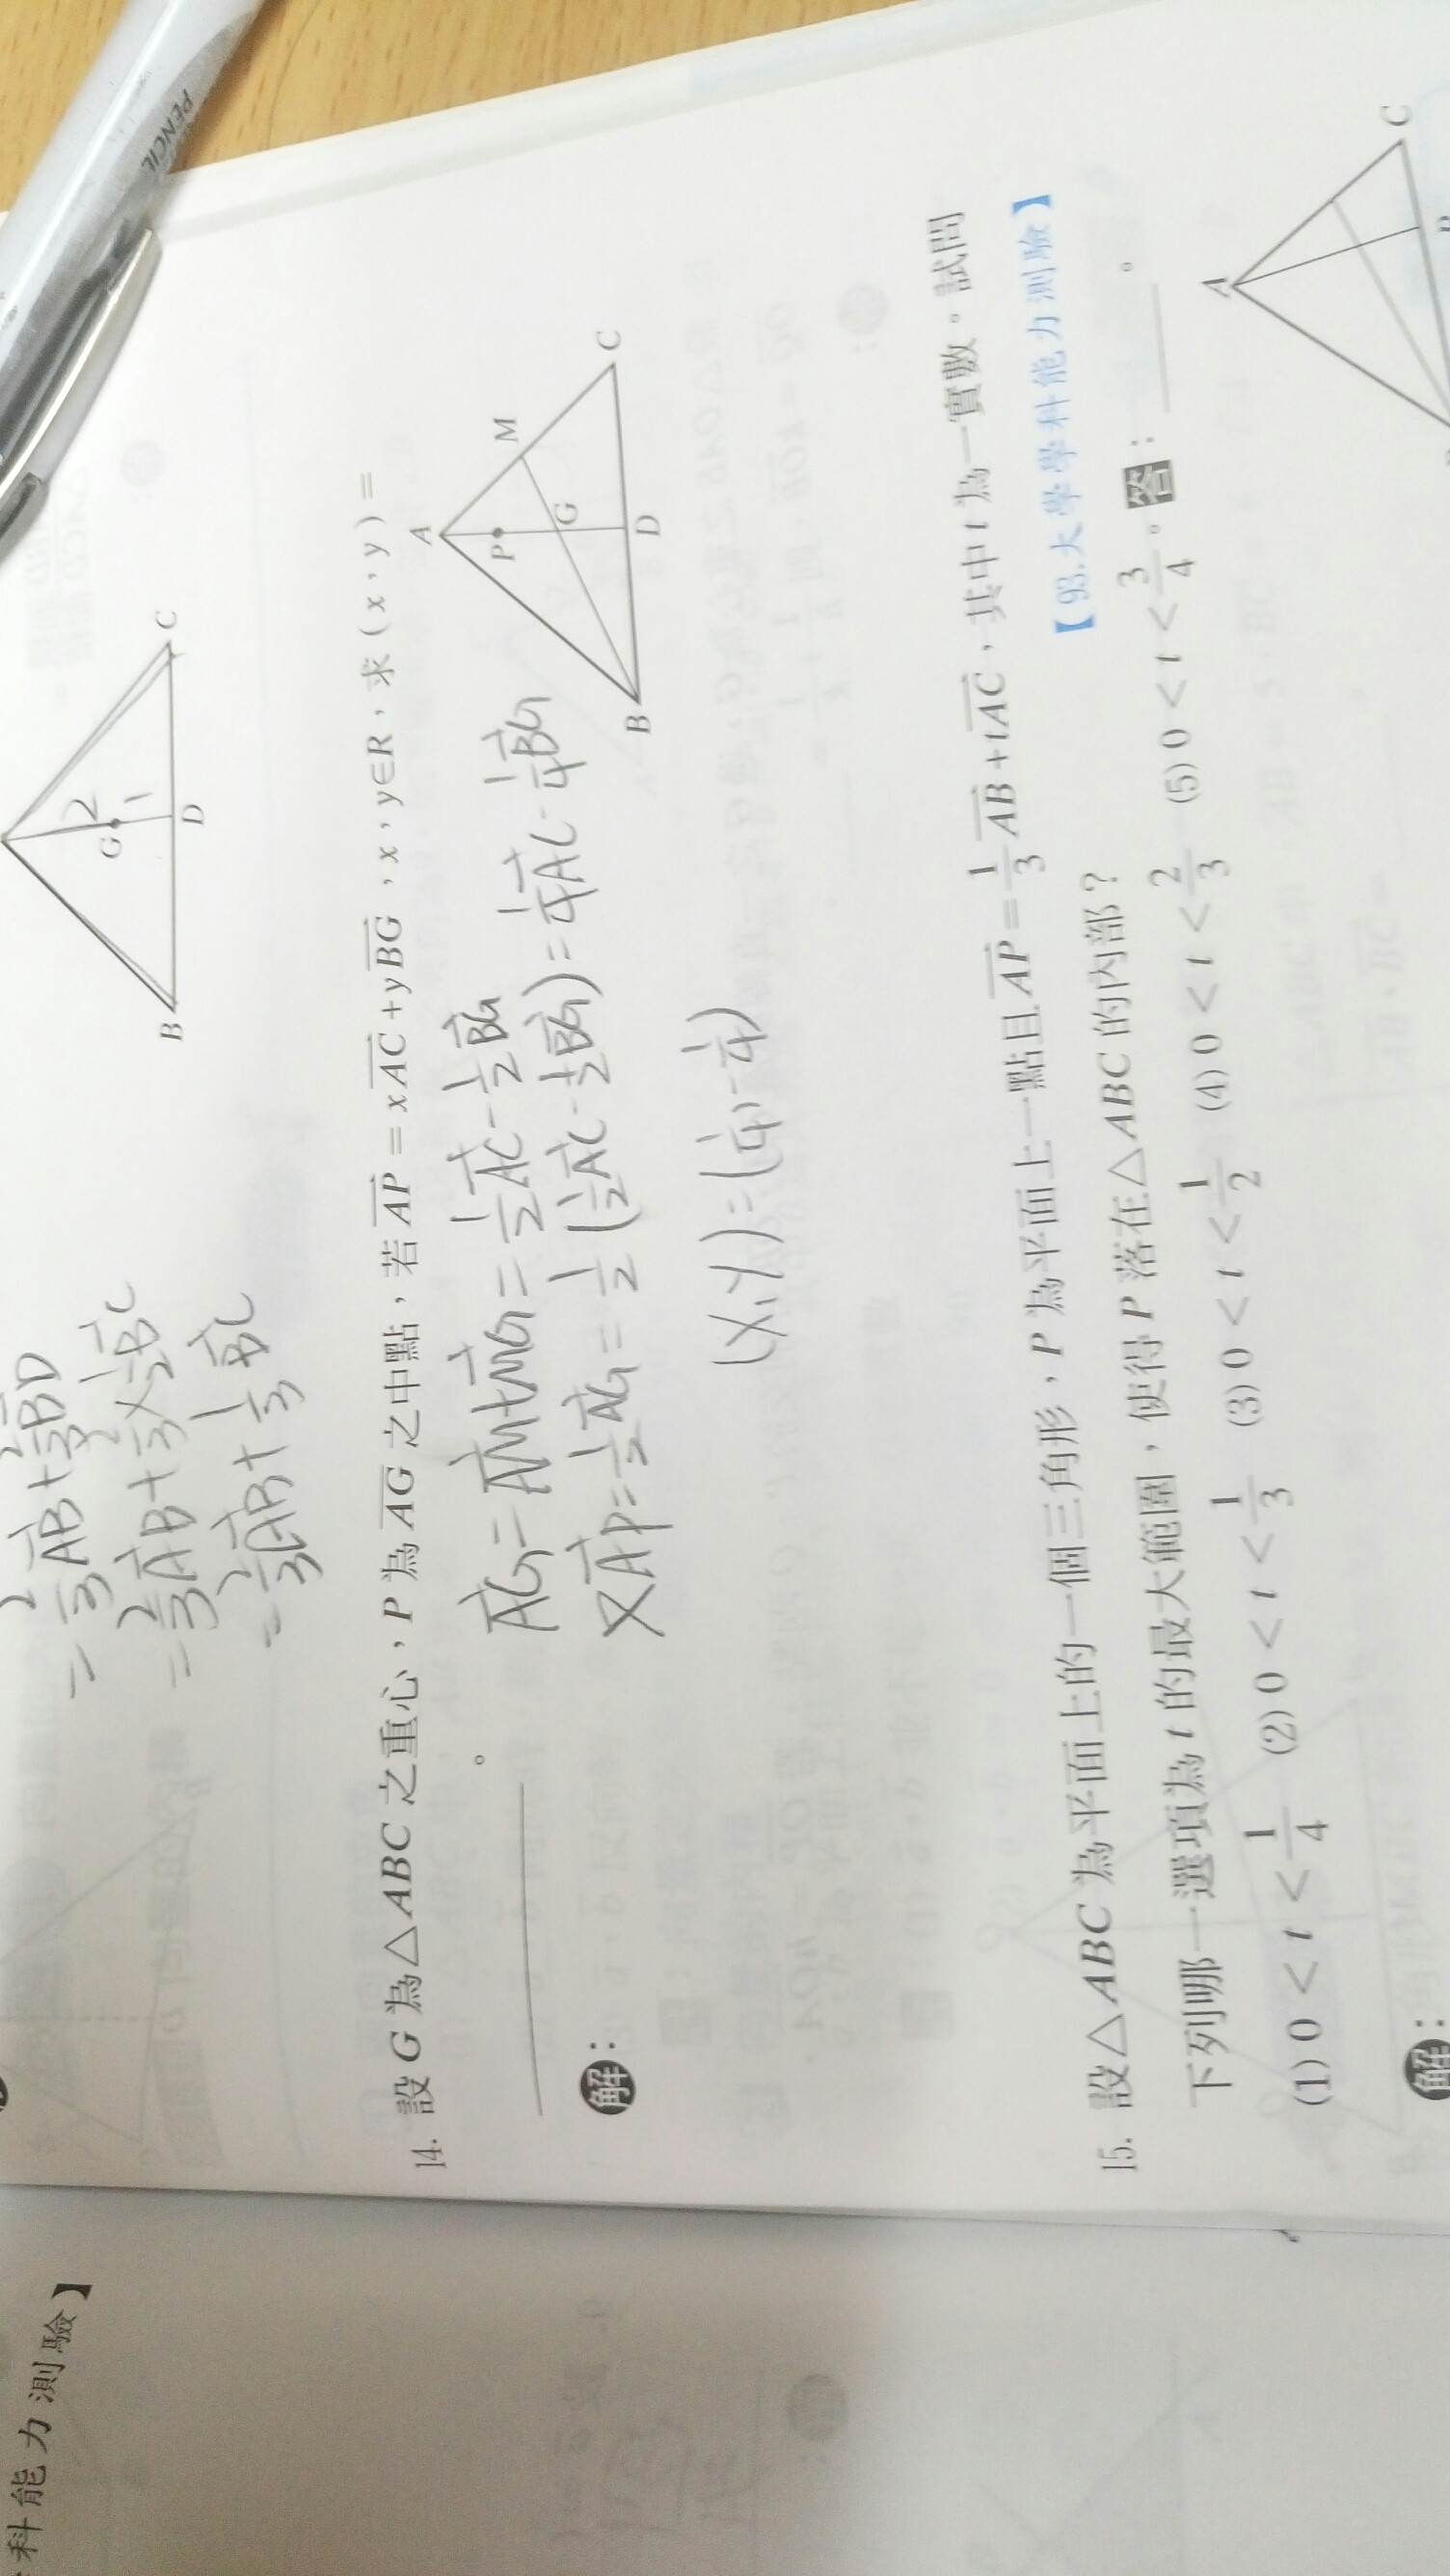 PENCIL
G 2
1
B D C
= 2/3 AB + 2/3 BD
= 2/3 AB + 2/3 × 1/2 BC
= 2/3 AB + 1/3 BC
14. 設 G 為△ABC 之重心，P 為 AG 之中點，若 AP = xAC + yBG，x，y∈R，求 ( x，y ) =
。
AG = AM + MG = 1/2 AC - 1/2 BG
又 AP = 1/2 AG = 1/2 (1/2 AC - 1/2 BG) = 1/4 AC - 1/4 BG
(x, y) = (1/4, -1/4)
解：
A
P M
G
B D C
15. 設△ABC 為平面上的一個三角形，P 為平面上一點且 AP = 1/3 AB + tAC，其中 t 為一實數。試問
下列哪一選項為 t 的最大範圍，使得 P 落在△ABC 的內部？ 【93.大學學科能力測驗】
(1) 0 < t < 1/4 (2) 0 < t < 1/3 (3) 0 < t < 1/2 (4) 0 < t < 2/3 (5) 0 < t < 3/4。答：。
解：
A
C
科能力測驗】